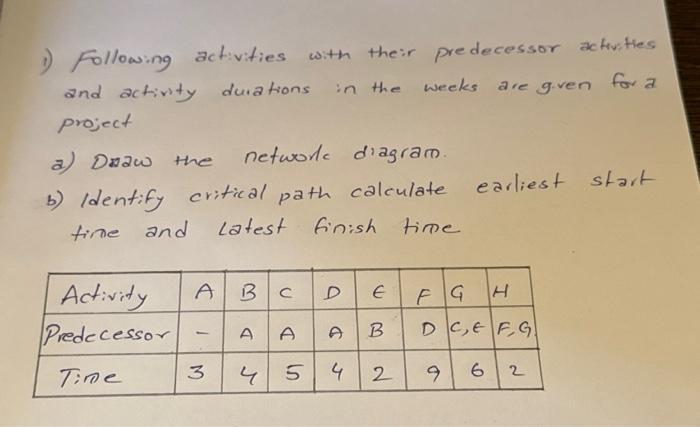 1) Following activities with their predecessor activities
and activity durations in the weeks are given for a
project
a) Draw the network diagram.
b) Identify critical path calculate earliest start
time and Latest finish time
Activity A B C D E F G H
Predecessor - A A A B D C,E F,G
Time 3 4 5 4 2 9 6 2